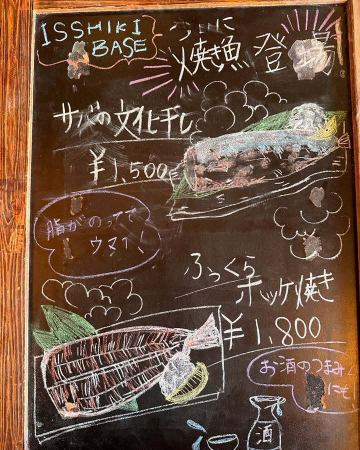 ISSHIKI
BASE
ついに
焼き魚 登場
サバの文化干し
¥1,500
脂がのってて
ウマイ
ふっくら
ホッケ焼き
¥1,800
お酒のつまみ
にも
酒